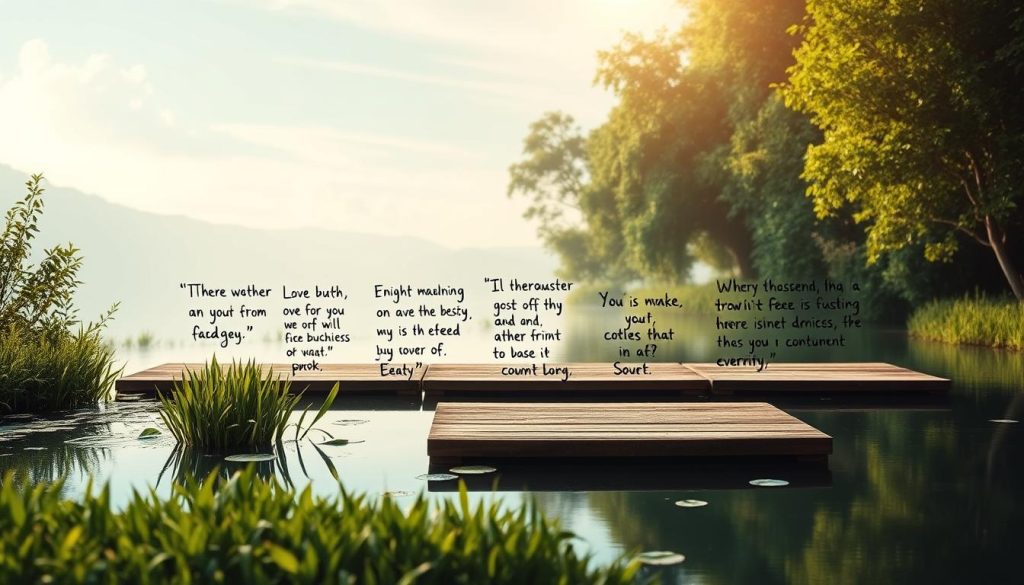 "TThere wather
an yout from
facdgey."
Love buth,
ove for you
we orf will
fice buchiess
of waat."
prok.
Enight maulning
on ave the besty,
my is th efeed
buy cover of.
Eeaty"
"Il theroauster
gost off thy
and and,
ather frint
to base it
count Lorg,
You is make,
yout,
cotles that
in af?
Sourt.
Whery thossend, Ing a
trow i't Feee is fusting
herre is inet drnices, fre
thas you i contunent
everrity,"